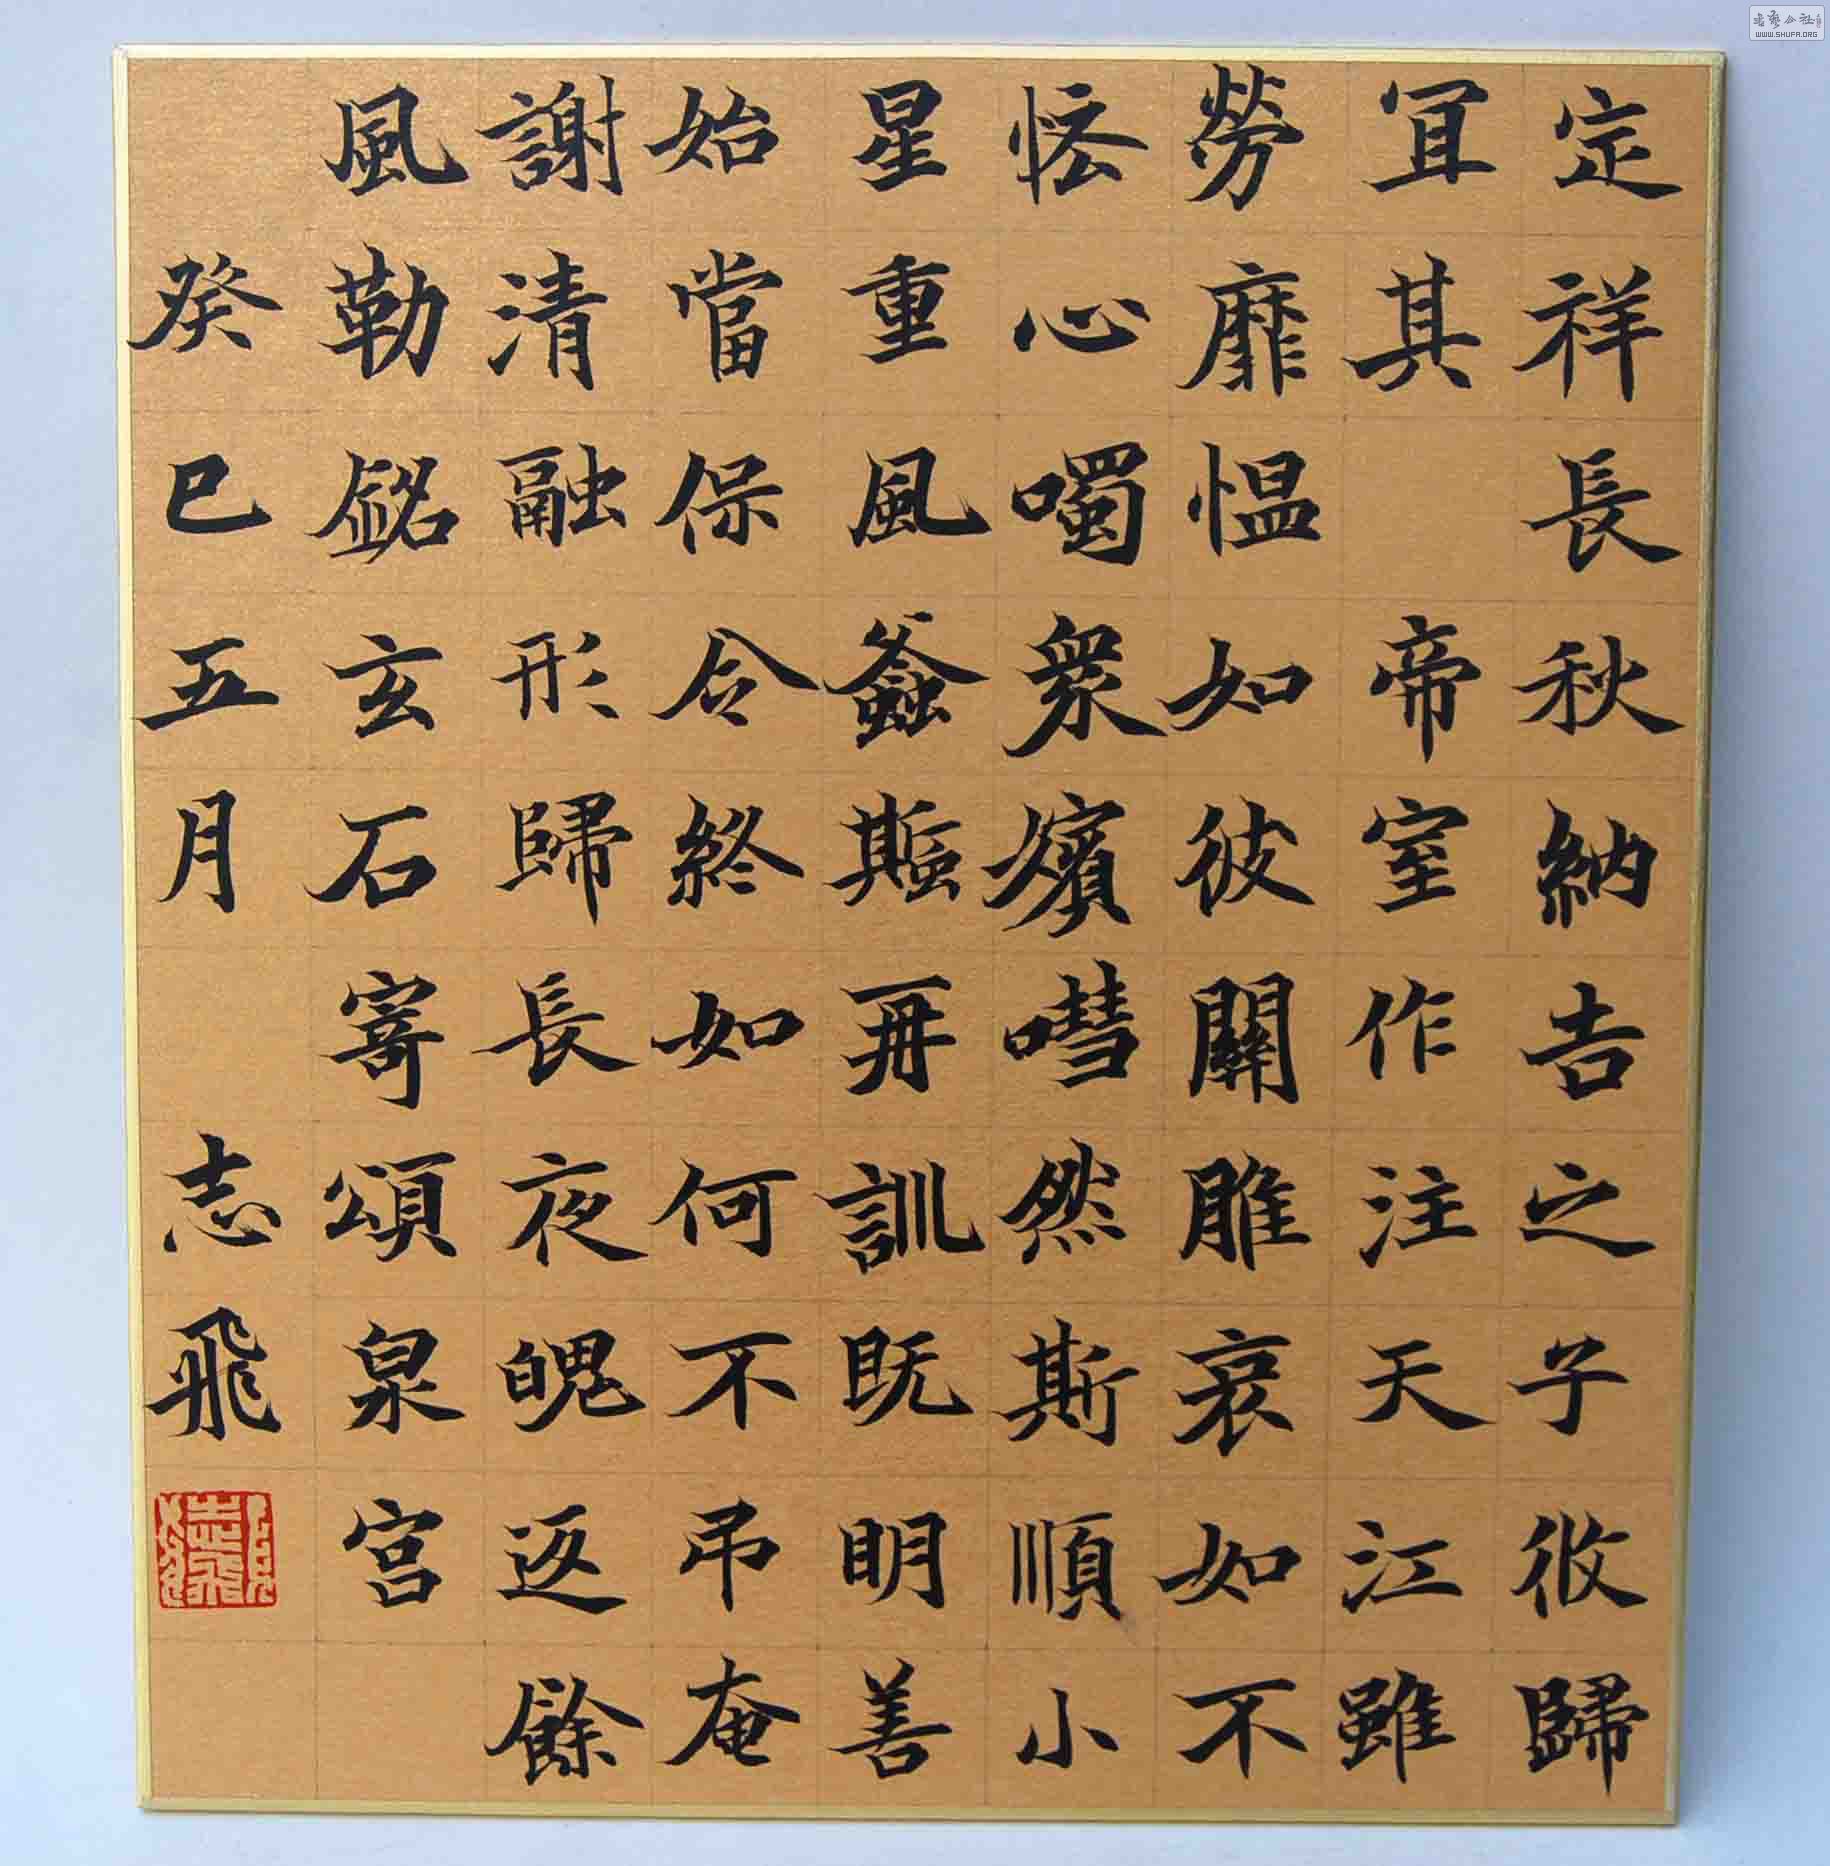 定祥長秋納吉之子攸歸
宜其 帝室作注天江雖
勞靡慍如彼關雎哀如不
悋心囑眾嬪嘒然斯順小
星重風螽蟴再訓既明善
始當保令終如何不吊奄
謝清融形歸長夜魄返餘
風勒銘玄石寄頌泉宮
癸巳五月 志飛
WWW.SHUFA.ORG